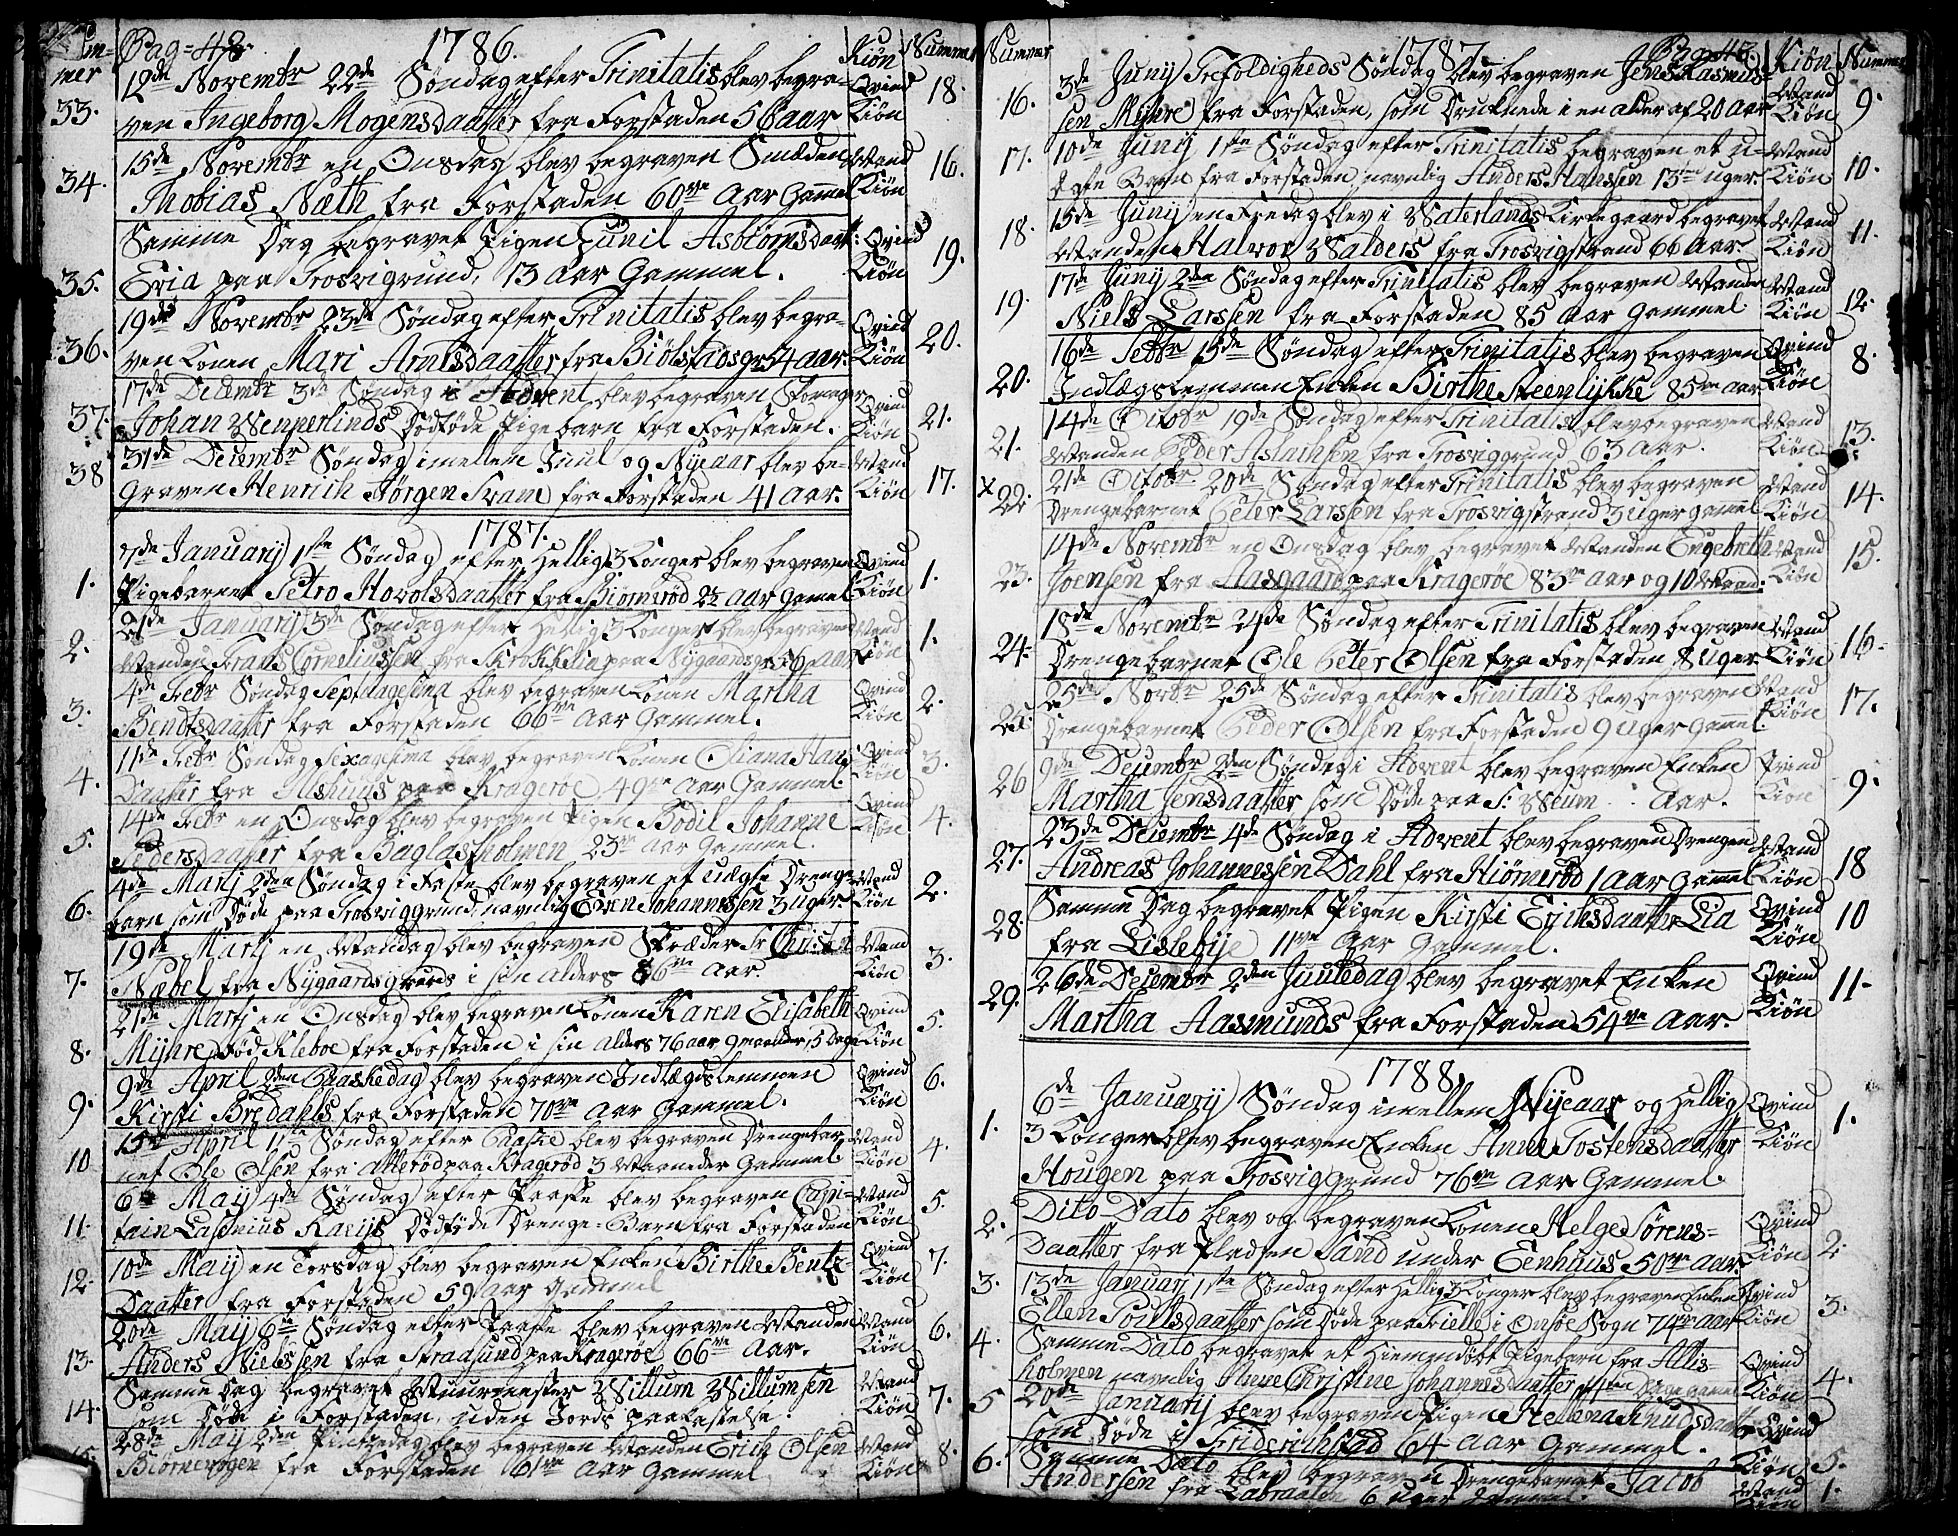 Pag=48 1786. Kiøn Nummer
12de Novembr 22de Søndag efter Trinitatis blev begra-
33. ven Ingeborg Mogensdaatter fra Forstaden 56 aar Qvind Kiøn 18.
15de Novembr en Onsdag blev begraven Smæden
34. Thobias Næth fra Forstaden 60ve Aar Gammel Mand Kiøn 16.
Samme Dag begravet Pigen Gunil Asbiørnsdaatt:
35. Eria paa Trosvigrund, 13 Aar Gammel. Qvind Kiøn 19.
19de Novembr 23de Søndag efter Trinitatis blev begra-
36. ven Konen Mari Arntsdaatter fra Biølstadsgr 54 aar. Qvind Kiøn 20.
17de Decembr 3de Søndag i Advent blev begraven
37. Johan Wennerlinds Dødføde Pigebarn fra Forstaden. Qvind Kiøn 21.
31de Decembr Søndag imellem Juul og Nyeaar blev be-
38 graven Henrich Jørgen Svam fra Forstaden 41 Aar. Mand Kiøn 17.
1787.
7de Januarij 1ste Søndag efter Hellig 3 Konger blev begraven
1. Pigebarnet Petro Hovolsdaatter fra Biørnerød 2½ Aar Gamel Qvind Kiøn 1.
21de Januarij 3de Søndag efter Hellig 3 Konger blev begraven
2. Manden Frans Corneliussen fra Krokklia paa Nygaardsgr 56 aar Mand Kiøn 1.
4de Febr Søndag Septuagesima blev begraven Konen Martha
3. Bendtsdaatter fra Forstaden 66ve Aar Gammel. Qvind Kiøn 2.
11de Febr Søndag Sexagesima blev begraven Konen Oliana Hans
4. Daatter fra Ilshuus paa Kragerøe 49ve Aar Gammel Qvind Kiøn 3.
14de Febr en Onsdag blev begraven Pigen Bodil Johanne
5. Pedersdaatter fra Baglasholmen 23ve Aar Gammel. Qvind Kiøn 4.
4de Martj 2den Søndag i Faste blev begraven et uægte Drenge
6. barn som Døde paa Trosviggrund, navnlig Søren Johannessen 3 uger Mand Kiøn 2.
19de Martj en Mandag blev begraven Skræder Sr Christen
7. Næbel fra Nygaardsgrund i sin Alders 86ve Aar. Mand Kiøn 3.
21de Martj en Onsdag blev begraven Konen Karen Elisabeth
8. Myhre, Fød Kleboe fra Forstaden i sin Alders 76 aar 9 maaneder, 5 Dage Qvind Kiøn 5.
9de April 2den Paaskedag blev begraven Indlægdslemmen
9. Kirsti Bredahls fra Forstaden 70ve Aar Gammel. Qvind Kiøn 6.
15de April 1ste Søndag efter Paaske blev begraven Drengebar
10 net Ole Olsen fra Allerød paa Kragerød 3 Maaneder Gammel Mand Kiøn 4.
6te May 4de Søndag efter Paaske blev begraven Capi-
11. tain Lasenius Kaeiis Dødføde Drenge=Barn fra Forstaden Mand Kiøn 5.
10de May en Torsdag blev begraven Enken Birthe Bentz-
12. Daatter fra Forstaden 59 Aar Gammel Qvind Kiøn 7.
20de May 6te Søndag efter Paaske blev begraven Manden
13. Anders Nielssen fra Straasund paa Kragerøe 66ve Aar. Mand Kiøn 6.
Samme Dag begravet Muurmester Willum Willumsen
14. som Døde i Forstaden, uden Jords paakastelse. Mand Kiøn 7.
28de May 2den Pintzedag blev begraven Manden Erich Olsen
15. Biørnevogen fra Forstaden 61ve Aar Gammel Mand Kiøn 8.
Nummer 1787. Kiøn Nummer
3de Junij Trefoldigheds Søndag blev begraven Jens Rasmus-
16. sen Myhre fra Forstaden, som Druknede i en alder af 20 Aar Mand Kiøn 9.
10de Junij 1ste Søndag efter Trinitatis begraven et u-
17. ægte Barn fra Forstaden navnlig Anders Hanssen 13 uger. Mand Kiøn 10.
15de Junij en Fredag blev i Waterlands Kirkegaard begravet
18. Manden Halvor Walders fra Trosvigstrand 66 Aar Mand Kiøn 11.
17de Junij 2den Søndag efter Trinitatis blev begraven Manden
19. Niels Larssen fra Forstaden 85 Aar Gammel Mand Kiøn 12.
16de Septbr 15de Søndag efter Trinitatis blev begraven
20. Indlægslemmen Enken Birthe Steenlykke 85ve Aar Qvind Kiøn 8.
14de Octobr 19de Søndag efter Trinitatis blev begraven
21. Manden Peder Aslachsen fra Trosviggrund 63 Aar. Mand Kiøn 13.
21de Octobr 20de Søndag efter Trinitatis blev begraven
x 22. Drengebarnet Peter Larssen fra Trosvigstrand 3 uger gammel Mand Kiøn 14.
14de Novembr en Onsdag blev begravet Manden Engebreth
23. Joensen fra Aasgaard paa Kragerøe 83ve Aar og 10 Maan: Mand Kiøn 15.
18de Novembr 24de Søndag efter Trinitatis blev begraven
24. Drengebarnet Ole Peter Olsen fra Forstaden 8 uger Mand Kiøn 16.
25de Novbr 25de Søndag efter Trinitatis blev begraven
25. Drengebarnet Peder Olsen fra Forstaden 9 uger Gammel. Mand Kiøn 17.
9de Decembr 2den Søndag i Advent blev begraven Enken
26 Martha Jensdaatter som Døde paa S: Weum . . Aar. Qvind Kiøn 9.
23de Decembr 4de Søndag i Advent blev begraven Drengen
27. Andreas Johannessen Dahl fra Hiørnerød 1 Aar Gammel Mand Kiøn 18
Samme Dag begravet Pigen Kirsti Erichsdaatter Lia
28. fra Lislebye 11ve Aar Gammel. Qvind Kiøn 10
26de Decembr 2den Juuledag blev begravet Enken
29. Martha Aasmunds fra Forstaden 54ve Aar. Qvind Kiøn 11.
1788.
6de Januarij Søndag imellem Nyeaar og Hellig
1. 3 Konger blev begraven Enken Anne Tostensdaatter Qvind Kiøn 1.
Hougen paa Trosviggrund 76ve Aar Gammel.
2. Dito Dato blev og begraven Konen Helge Sørens-
Daatter fra Pladsen Sand under Eenhuus 50ve Aar. Qvind Kiøn 2.
3. 13de Januarj 1ste Søndag efter Hellig 3 Konger blev begraven Enken
Ellen Poulsdaatter som Døde paa Fielle i Onsøe Sogn 74ve aar Qvind Kiøn 3.
4. Samme Dato begravet et Hiemmedøbt Pigebarn fra Allis-
holmen navnlig Anne Christine Johannesdaatter Dage gammel Qvind Kiøn 4.
5 20de Januarij blev begraven Pigen Hellena Knudsdaatter
som Døde i Friderichstad 64 Aar Gammel. Qvind Kiøn 5.
6. Samme Dato blev begraven Drengebarnet Jacob
Andersen fra Labraaten 6 uger Gammel. Mand Kiøn 1.